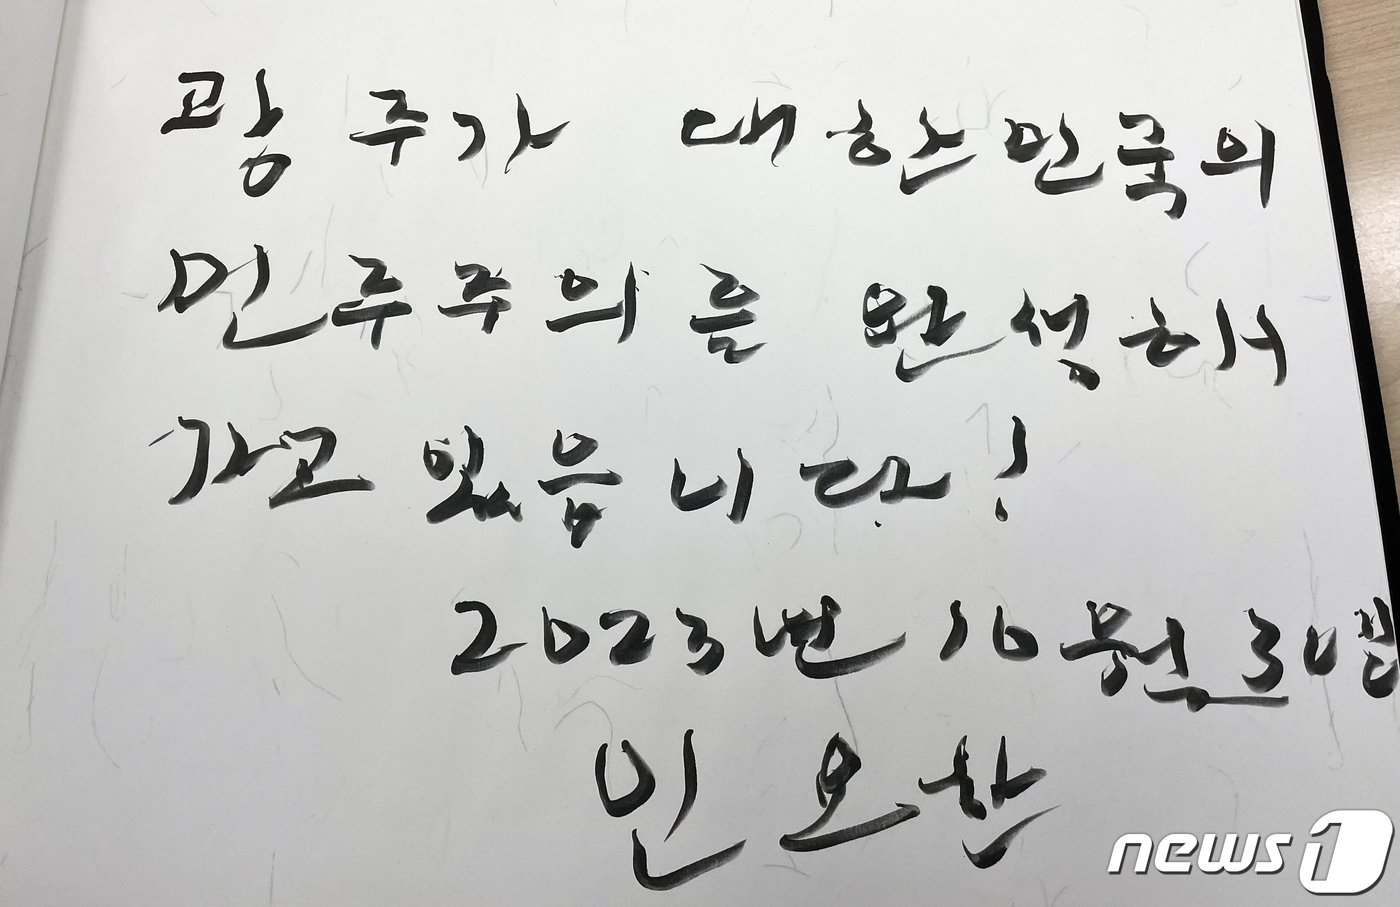 광주가 대한민국의
민주주의를 완성해
가고 있읍니다!
2023년 10월 30일
인요한
news1